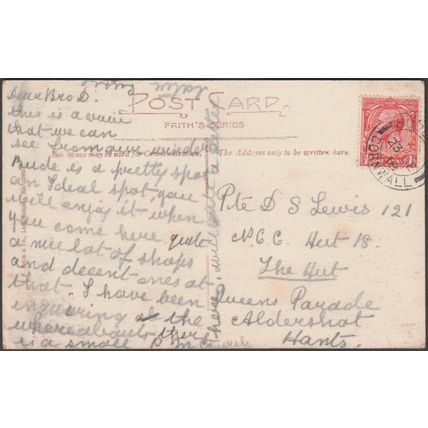 later
Dear Bro D.
this is a view
that we can
see from our window
Bude is a pretty spot
an Ideal spot, you
will enjoy it when
you come here quite
a nice lot of shops
and decent ones at
that. I have been
inquiring at the
whereabouts there
is a small
here, will write a letter
POST CARD
FAITH'S SERIES
The Address only to be written here.
CORNWALL
Pte D S Lewis 121
N.C.C. Hut 18.
The Hut
Queens Parade
Aldershot
Hants.